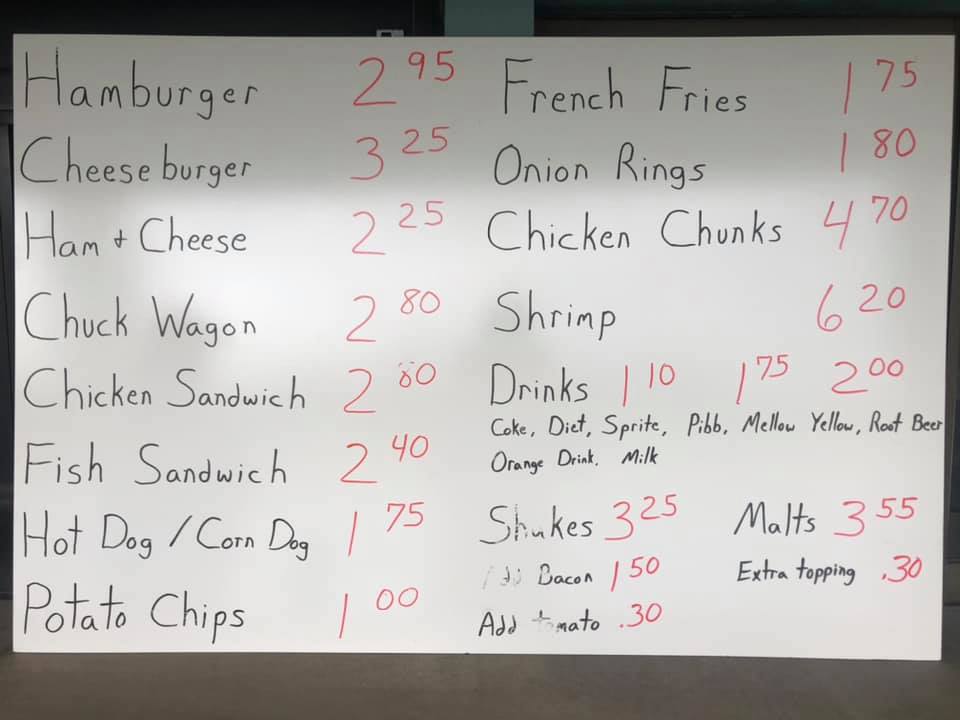 Hamburger 2 95
Cheeseburger 3 25
Ham + Cheese 2 25
Chuck Wagon 2 80
Chicken Sandwich 2 80
Fish Sandwich 2 40
Hot Dog / Corn Dog 1 75
Potato Chips 1 00
French Fries 1 75
Onion Rings 1 80
Chicken Chunks 4 70
Shrimp 6 20
Drinks 1 10 1 75 2 00
Coke, Diet, Sprite, Pibb, Mellow Yellow, Root Beer
Orange Drink, Milk
Shakes 3 25 Malts 3 55
Add Bacon 1 50 Extra topping .30
Add tomato .30